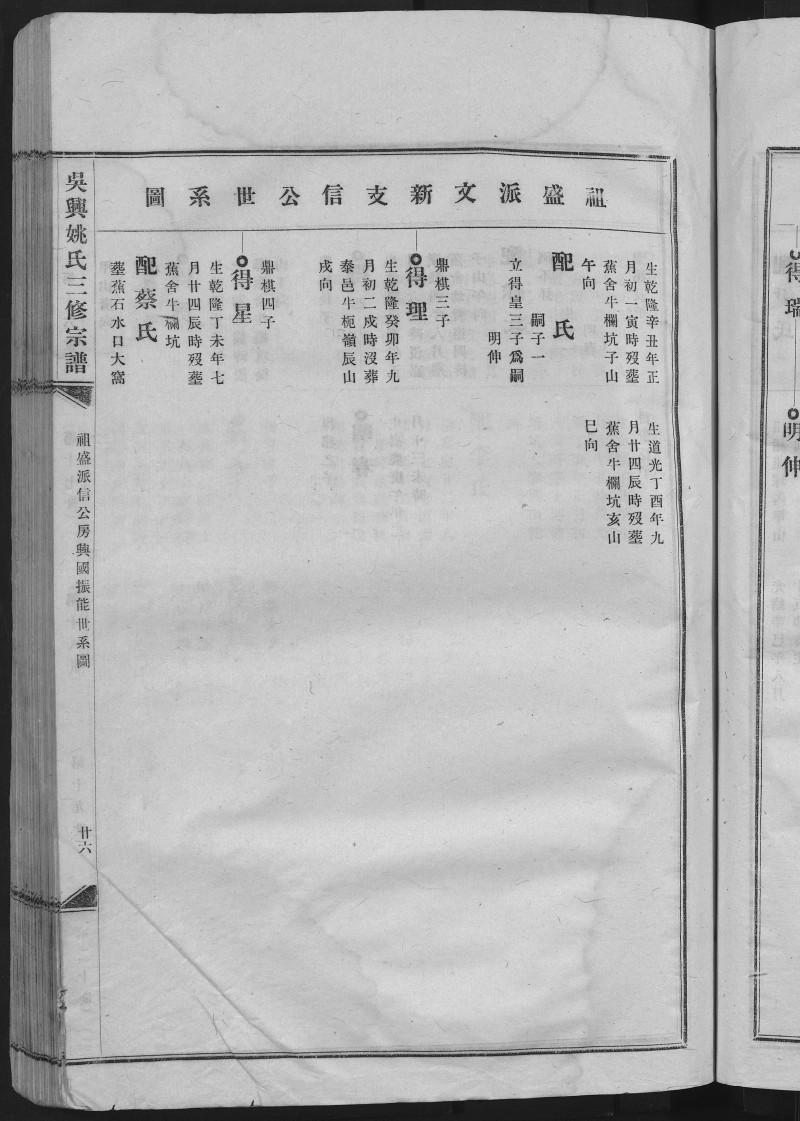 得瑞
明伸
祖盛派文新支信公世系圖
生乾隆辛丑年正
月初一寅時歿塟
蕉舍牛欄坑子山
午向
生道光丁酉年九
月廿四辰時歿塟
蕉舍牛欄坑亥山
巳向
配 氏
嗣子一
立得皇三子爲嗣
明伸
鼎棋三子
得理
生乾隆癸卯年九
月初二戍時沒葬
泰邑牛軛嶺辰山
戍向
鼎棋四子
得星
生乾隆丁未年七
月廿四辰時歿塟
蕉舍牛欄坑
配蔡氏
塟蕉石水口大窩
吳興姚氏三修宗譜
祖盛派信公房興國振能世系圖
廿六